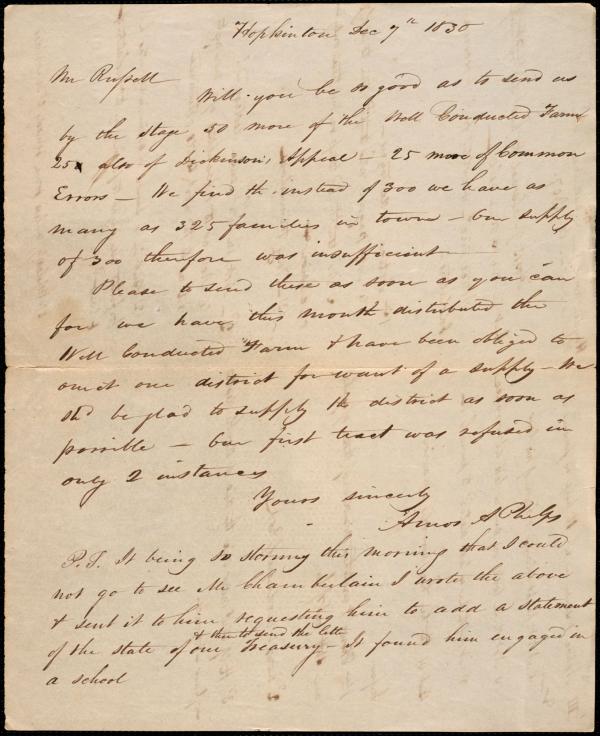 Hopkinton Dec 7th 1830
Mr Russell
Will you be so good as to send us
by the stage, 50 more of the Well Conducted Farm
25 also of Dickinson's Appeal - 25 more of Common
Errors - We find th. instead of 300 we have as
many as 325 families in town - Our supply
of 300 therefore was insufficient
Please to send these as soon as you can
for we have this month distributed the
Well Conducted Farm & have been obliged to
omit one district for want of a supply - We
shd be glad to supply th district as soon as
possible - Our first tract was refused in
only 2 instances
Yours sincerely
Amos A Phelps
P.S. It being so stormy this morning that I could
not go to see Mr Chamberlain I wrote the above
& sent it to him requesting him to add a statement
& then to send the lette
of the state of our Treasury - It found him engaged in
a school